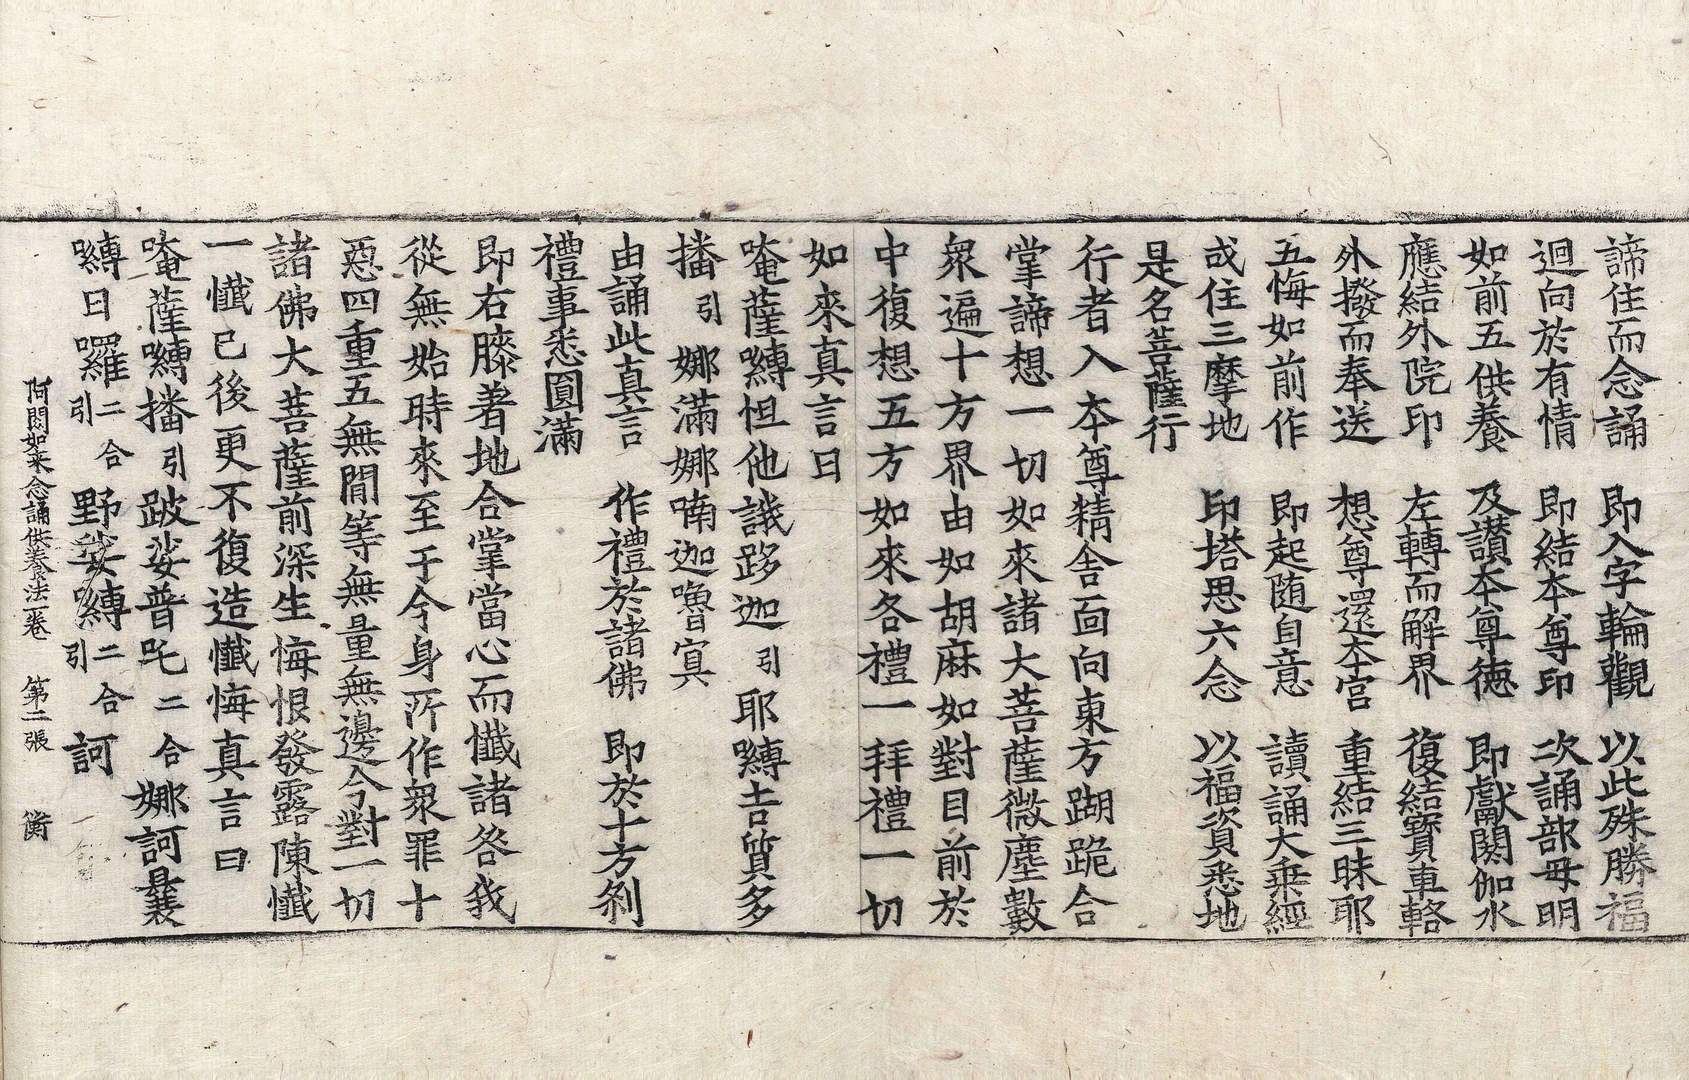 諦住而念誦　即入字輪觀　以此殊勝福
迴向於有情　即結本尊印　次誦部母明
如前五供養　及讚本尊德　即獻閼伽水
應結外院印　左轉而解界　復結寶車輅
外撥而奉送　想尊還本宮　重結三昧耶
五悔如前作　即起随自意　讀誦大乗經
或住三摩地　印塔思六念　以福資悉地
是名菩薩行
行者入本尊精舍面向東方蹋跪合
掌諦想一切如來諸大菩薩微塵數
衆遍十方界由如胡麻如對目前於
中復想五方如來各禮一拜禮一切
如來真言曰
唵薩嚩怛他誐跢迦引耶嚩吉質多
播引娜滿娜喃迦嚕寘
由誦此真言　作禮於諸佛　即於十方剎
禮事悉圓滿
即右膝著地合掌當心而懺諸咎我
從無始時來至于今身所作衆罪十
惡四重五無間等無量無邊今對一切
諸佛大菩薩前深生悔恨發露陳懺
一懺已後更不復造懺悔真言曰
唵薩嚩播引跛娑普吒二合娜訶曩
嚩日囉二合引野娑嚩二合引訶
阿閦如来念誦供養法一卷　第二張　衡